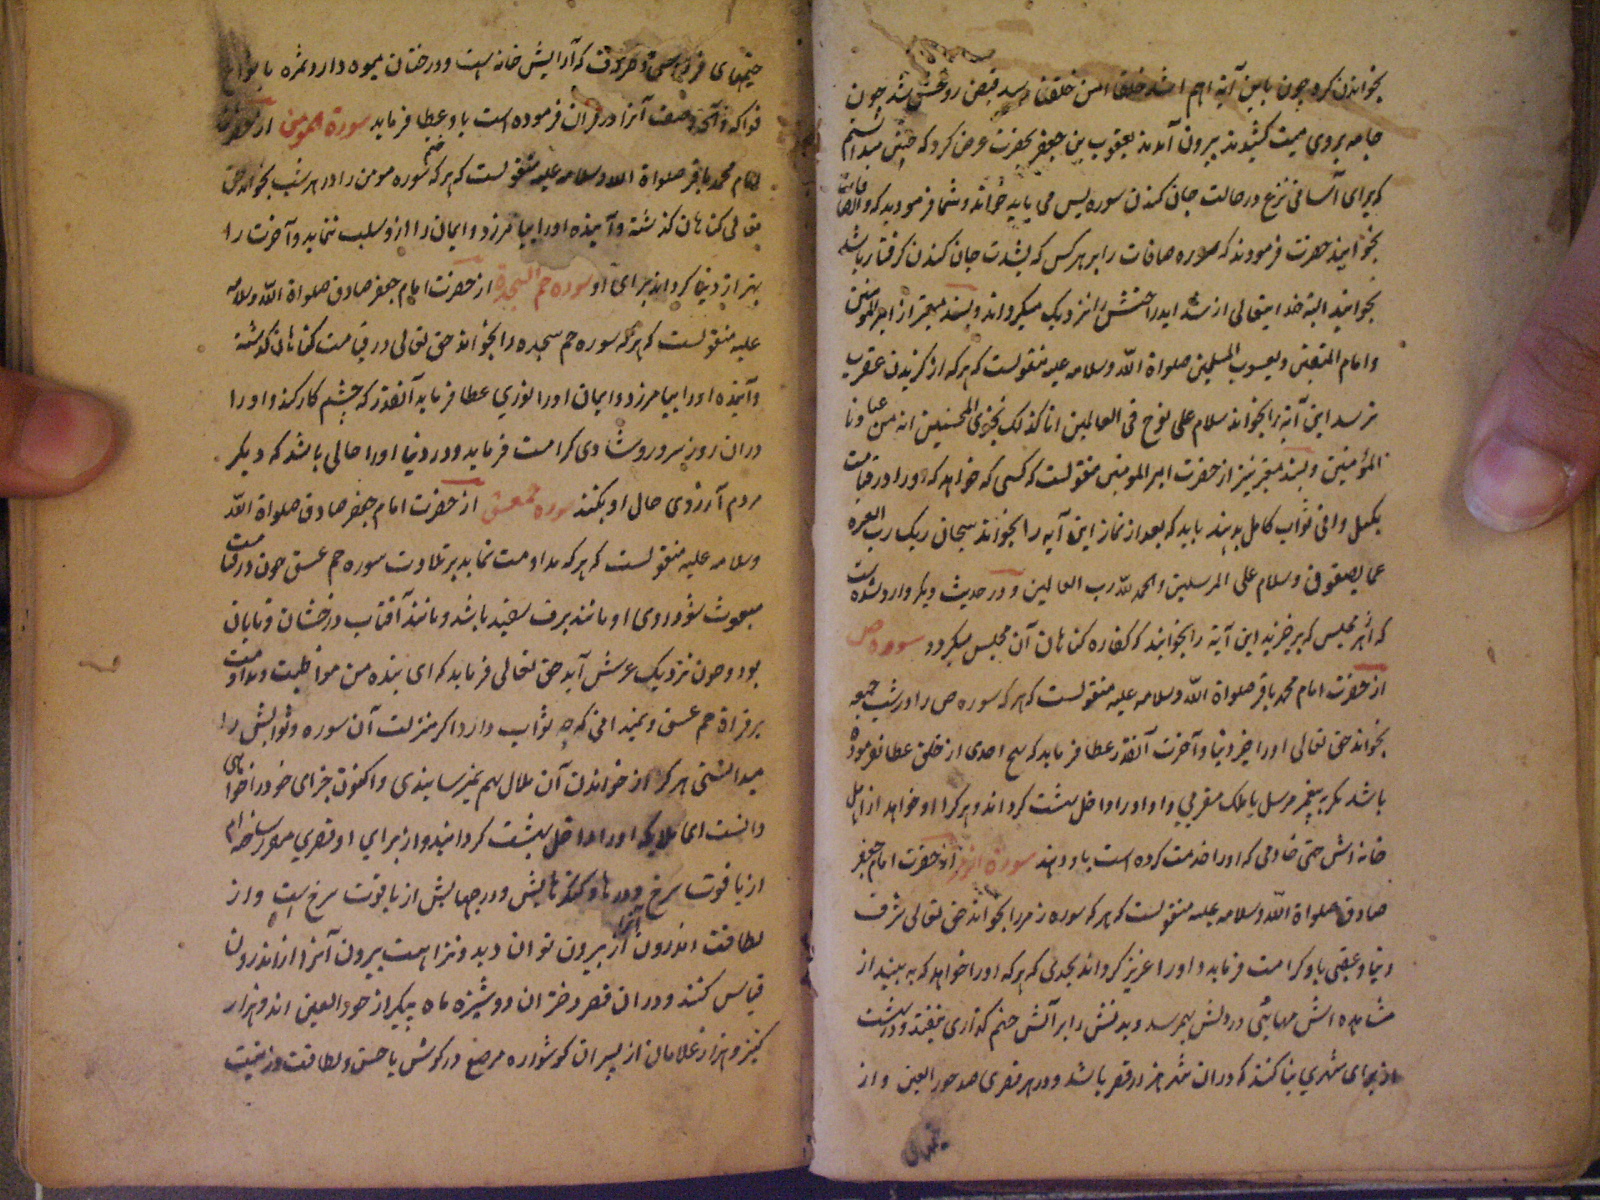 بخواندن کرد چون باین آیه اهم اشد خلقا امن خلقنا رسید قبض روحش شد چون
جامه بروی میت کشیدند بیرون آمدند یعقوب بن جعفر بحضرت عرض کرد که چنین میدانستم
که برای آسانی نزع در حالت جان کندن سوره یس می باید خواند و شما فرمودید که والصافات
بخوانید حضرت فرمودند که سوره صافات را بر هر کس که بشدت جان کندن گرفتار باشد
بخوانید البته خدایتعالی از شداید راحتش را نزدیک میکرداند و بسند معتبر از امیرالمومنین
وامام المتقین و یعسوب المسلمین صلواة الله وسلامه علیه منقولست که هر که از کزیدن عقرب
ترسد این آیه را بخواند سلام علی نوح فی العالمین انا کذلک نجزی المحسنین انه من عبادنا
المؤمنین و بسند معتبر نیز از حضرت امیر المومنین منقولست که کسی که خواهد که اورا در قیامت
بکیل وافی ثواب کامل بدهند باید که بعد از نماز این آیه را بخواند سبحان ربک رب العزه
عما یصفون و سلام علی المرسلین والحمد لله رب العالمین و در حدیث دیکر وارد شده است
که از هر مجلس که برخیزید این آیه را بخوانید که کفاره کناهان آن مجلس میکردد سوره ص
از حضرت امام محمد باقر صلواة الله وسلامه علیه منقولست که هر که سوره ص را در شب جمعه
بخواند حق تعالی اورا خیر دنیا و آخرت آنقدر عطا فرماید که هیچ احدی از خلق عطا نفرموده
باشد مکر به پیغمبر مرسل یا ملک مقربی و او را داخل بهشت کرداند و هر کرا او خواهد از اهل
خانه اش حتی خادمی که اورا خدمت کرده است باو دهند سوره الزمر از حضرت امام جعفر
صادق صلواة الله وسلامه علیه منقولست که هر که سوره زمر را بخواند حق تعالی شرف
دنیا و عقبی باو کرامت فرماید و اورا عزیز کرداند بحدی که هر که اورا خواهد که به بیند از
مشاهده اش مهابتی در دلش بهم رسد و بدنش را بر آتش جهنم که داری نیفتد و در بهشت
از برای شهری بنا کنند که در آن شهر هزار قصر باشد و در هر قصری صد حور العین و از
چشمهای
چشمهای که آرایش خانه است و درختان میوه دار و ثمره با انواع
فواکه و آنچه وصف آنرا در قران فرموده است باو عطا فرماید سوره المومن از حضرت
امام محمد باقر صلواة الله وسلامه علیه منقولست که هر که سوره حم مومن را در هر شب بخواند حق
تعالی کناهان کذشته و آینده اورا بیامرزد و ایمان را از و سلب ننماید و آخرت را
بهتر از دنیا کرداند برای او سوره حم السجده از حضرت امام جعفر صادق صلواة الله وسلامه
علیه منقولست که هر که سوره حم سجده را بخواند حق تعالی در قیامت کناهان کذشته
و آینده اورا بیامرزد و ایمان اورا نوری عطا فرماید آنقدر که چشم کار کند و اورا
در ان روز سرور و شادی کرامت فرماید و در دنیا اورا حالی باشد که دیکر
مردم آرزوی حال او بکنند سوره حمعسق از حضرت امام جعفر صادق صلواة الله
وسلامه علیه منقولست که هر که مداومت نماید بر تلاوت سوره حم عسق چون در قیامت
مبعوث شود روی او مانند برف سفید باشد و مانند آفتاب درخشان و تابان
بود و چون نزدیک عرش آید حق تعالی فرماید که ای بنده من مواظبت و مداومت
بر قراءة حم عسق و نمیدانی که چه ثواب دارد اکر منزلت آن سوره و ثوابش را
میدانستی هر کز از خواندن آن ملال بهم نمیرسانیدی و اکنون جزای خود را خواهی
دانست ای ملایکه اورا داخل بهشت کردانید و از برای او قصری مقرر ساخته ام
از یاقوت سرخ و درها و کنکرهایش و درجهایش از یاقوت سرخ است و از
لطافت اندرون آنرا از بیرون توان دید و نزاهت بیرون آنرا از اندرون
قیاس کنند و در ان قصر دختران دوشیزه ماه پیکر از حور العین اند و هزار
کنیز و هزار غلامان از پسران کوشواره مرصع در کوش با حسن و لطافت و زینت